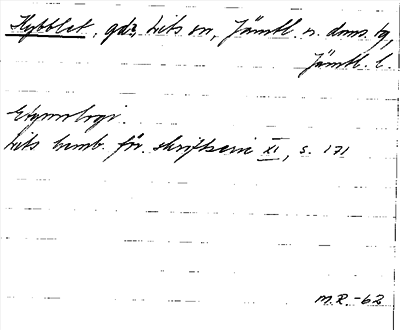 Kybblet, gd, Lits sn, Jämtl. n. doms. tg,
Jämtl. l.
Etymologi.
Lits hemb. för. skriftserie XI, s. 171
M.R.-62